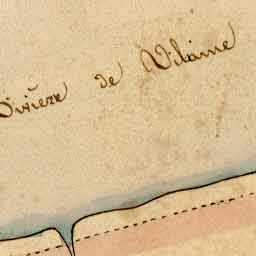 Rivière de Vilaine